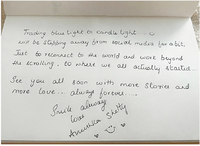 Trading blue light to candle light
will be stepping away from social media for a bit.
Just to reconnect to the world and work beyond
the scrolling. to where we all actually started.
See you all soon with more stories and
more love... always forever...
Smile always
Love
Anushka Shetty